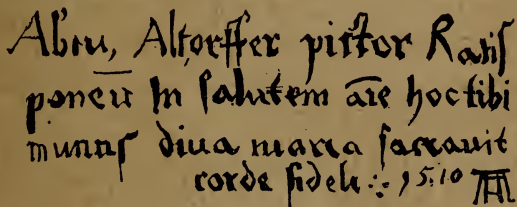 Albtu, Altorffer pictor Ratis
ponēn In salutem aīe hoc tibi
munus diva maria sacravit
corde fideli ∴ 1510 AA